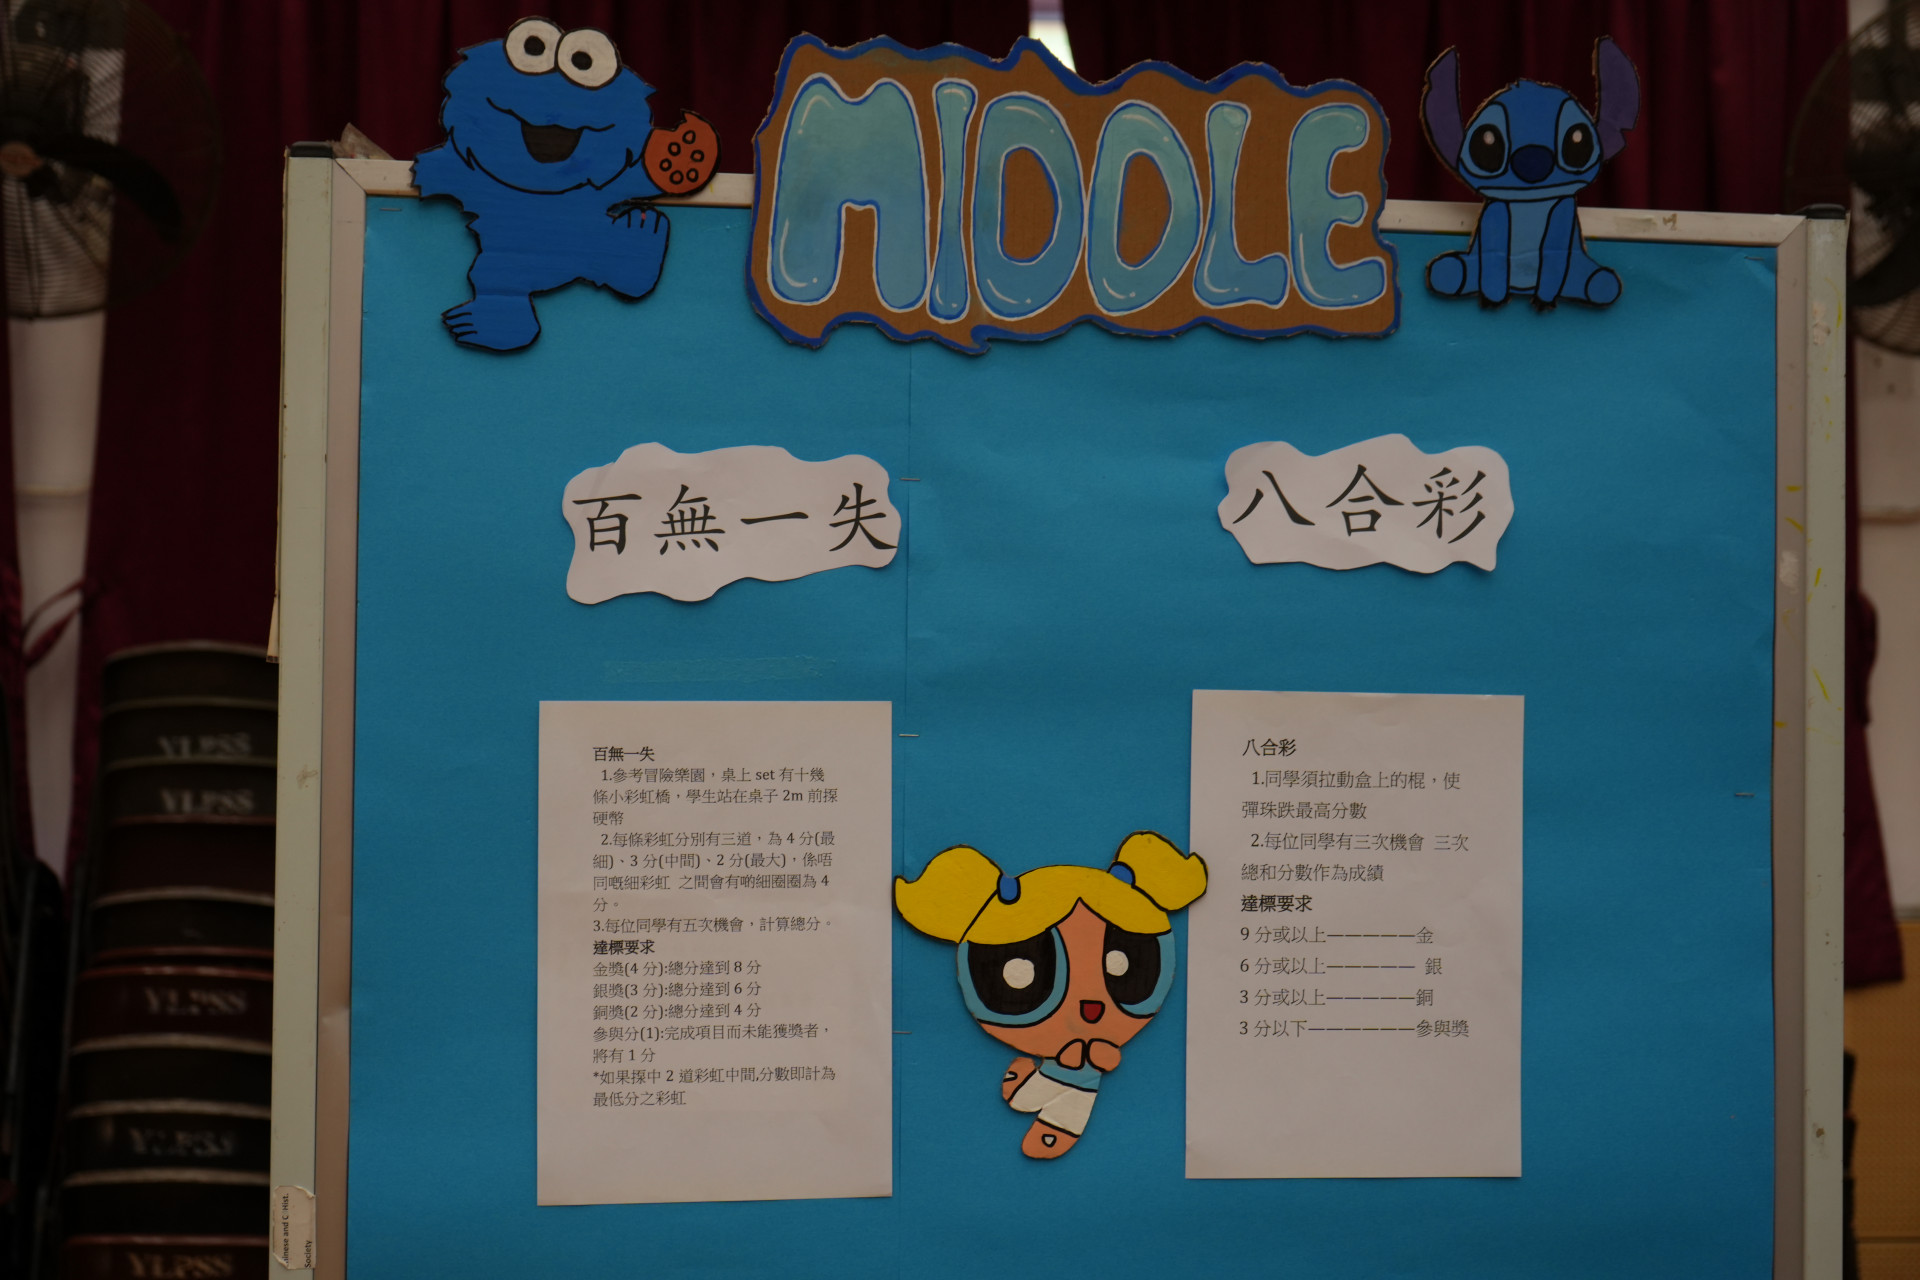 MIDDLE
百無一失
八合彩
百無一失
1.參考冒險樂園，桌上 set 有十幾
條小彩虹橋，學生站在桌子 2m 前揼
硬幣
2.每條彩虹分別有三道，為 4 分(最
細)、3 分(中間)、2 分(最大)，係唔
同嘅細彩虹 之間會有啲細圈圈為 4
分。
3.每位同學有五次機會，計算總分。
達標要求
金獎(4 分):總分達到 8 分
銀獎(3 分):總分達到 6 分
銅獎(2 分):總分達到 4 分
參與分(1):完成項目而未能獲獎者，
將有 1 分
*如果揼中 2 道彩虹中間,分數即計為
最低分之彩虹
八合彩
1.同學須拉動盒上的棍，使
彈珠跌最高分數
2.每位同學有三次機會 三次
總和分數作為成績
達標要求
9 分或以上—————金
6 分或以上————— 銀
3 分或以上—————銅
3 分以下——————參與獎
YLPSS
YLPSS
YLPSS
YLPSS
YLPSS
Hist.
Society